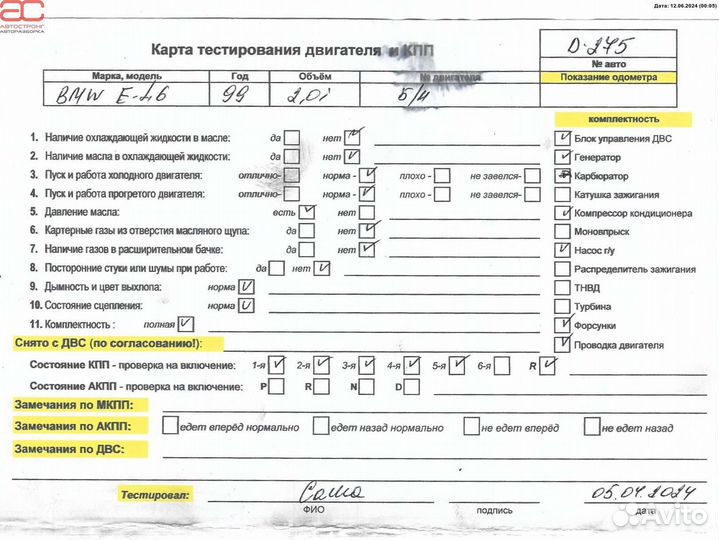 Дата: 12.06.2024 (00:05)
АС
АВТОСТРОНГ
АВТОРАЗБОРКА
Карта тестирования двигателя и КПП
D-275
№ авто
Марка, модель Год Объём № двигателя Показание одометра
BMW E-46 99 2,0i Б/Н
комплектность
1. Наличие охлаждающей жидкости в масле: да нет Блок управления ДВС
2. Наличие масла в охлаждающей жидкости: да нет Генератор
3. Пуск и работа холодного двигателя: отлично- норма - плохо - не завелся- Карбюратор
4. Пуск и работа прогретого двигателя: отлично- норма - плохо - не завелся- Катушка зажигания
5. Давление масла: есть нет Компрессор кондиционера
6. Картерные газы из отверстия масляного щупа: да нет Моновпрыск
7. Наличие газов в расширительном бачке: да нет Насос г/у
8. Посторонние стуки или шумы при работе: да нет Распределитель зажигания
9. Дымность и цвет выхлопа: норма ТНВД
10. Состояние сцепления: норма Турбина
11. Комплектность : полная Форсунки
Снято с ДВС (по согласованию!): Проводка двигателя
Состояние КПП - проверка на включение: 1-я 2-я 3-я 4-я 5-я 6-я R
Состояние АКПП - проверка на включение: P R N D
Замечания по МКПП:
Замечания по АКПП: едет вперёд нормально едет назад нормально не едет вперёд не едет назад
Замечания по ДВС:
Тестировал: Саша 05.04.2024
ФИО подпись дата
Avito